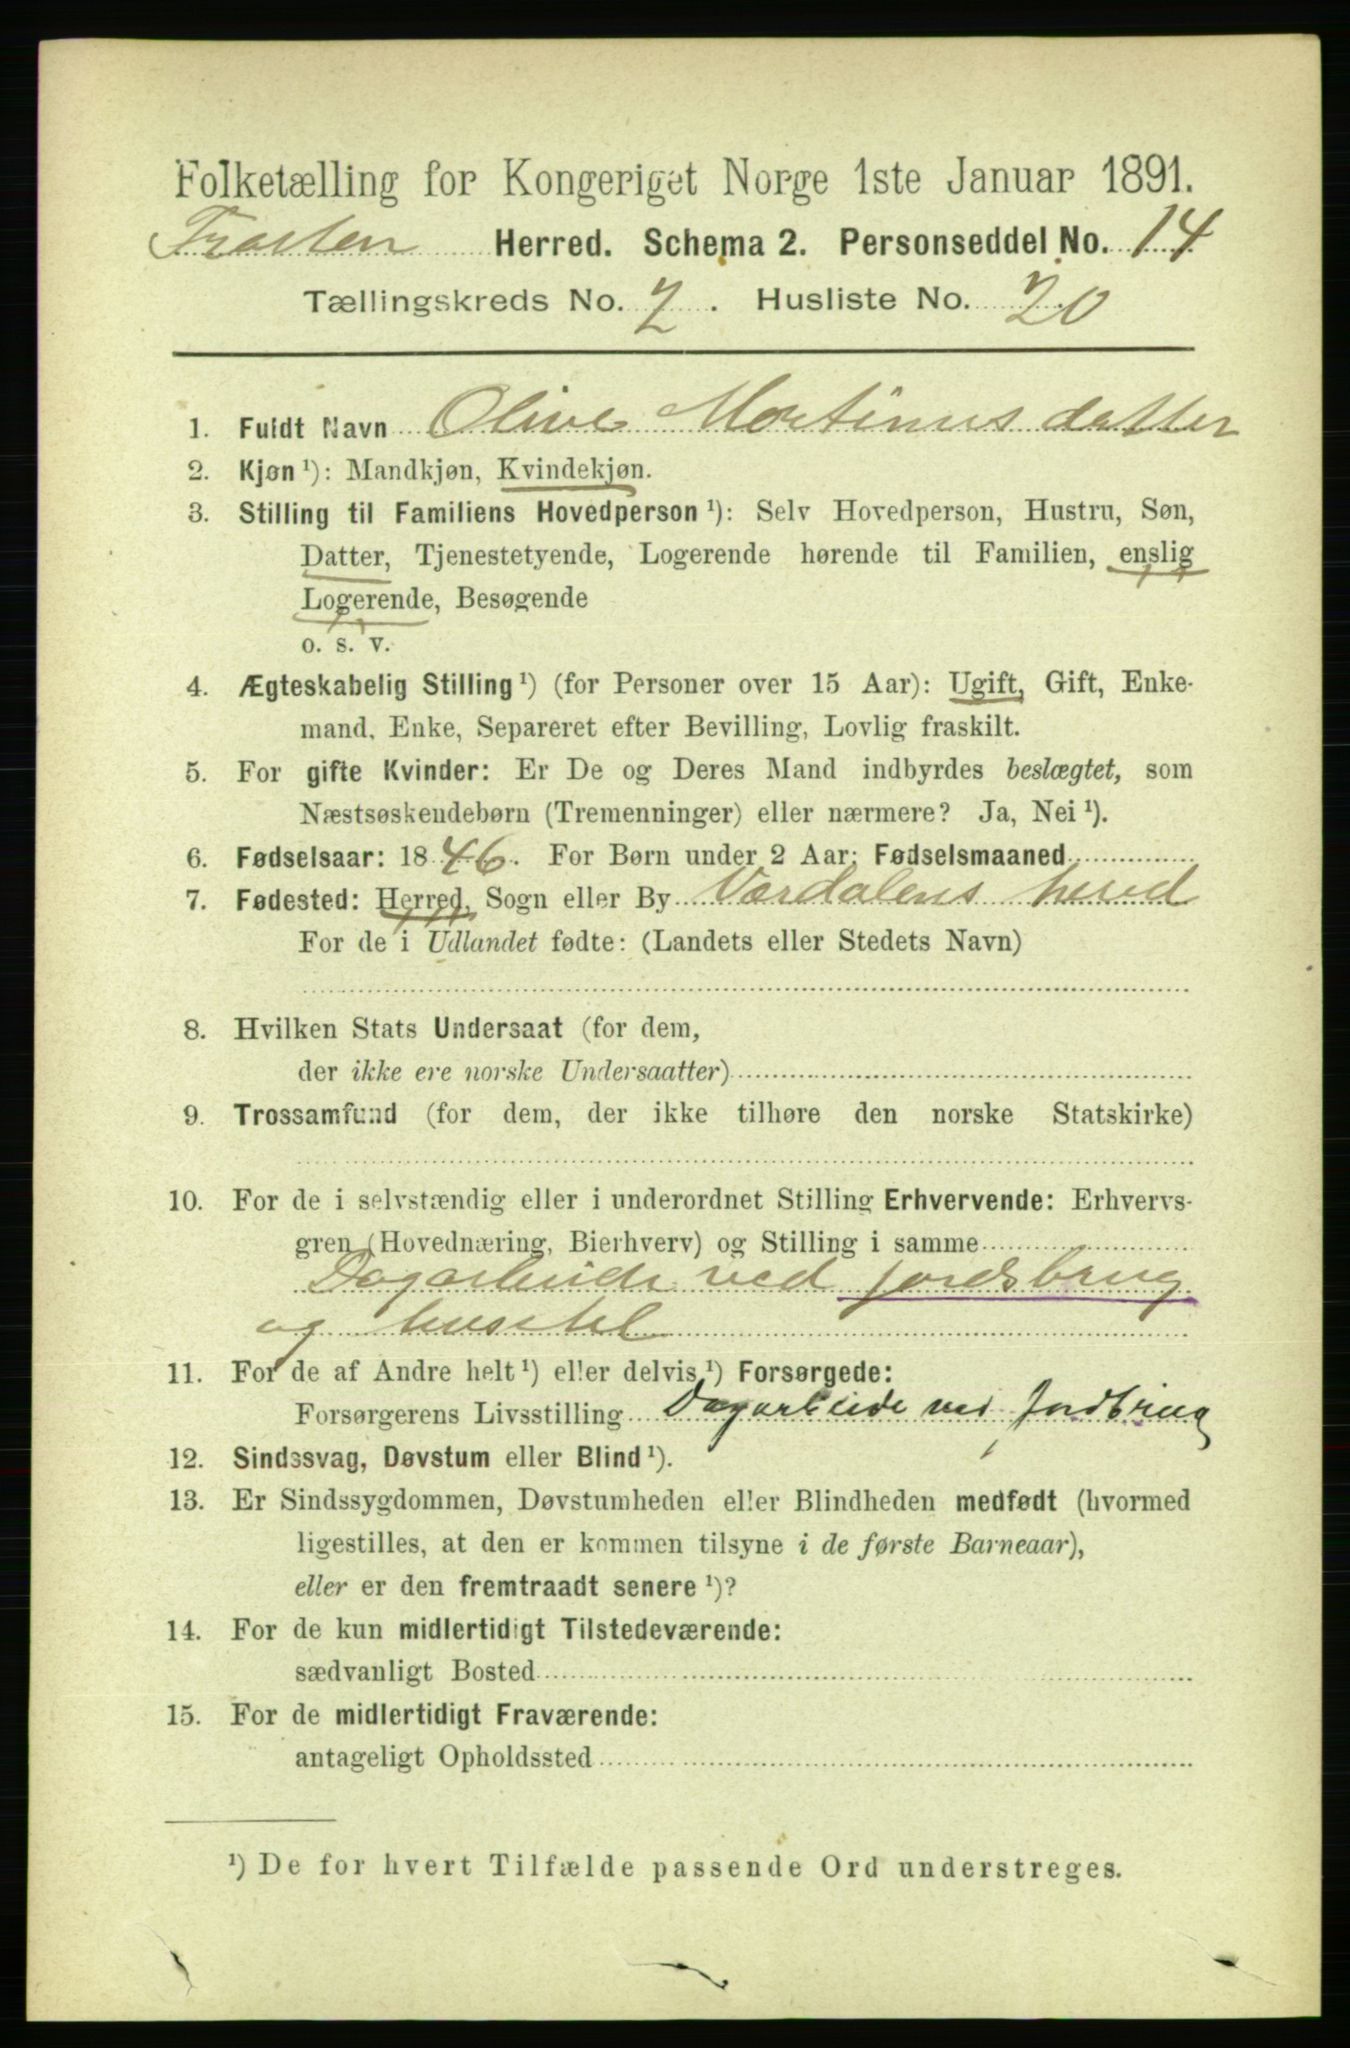 Folketælling for Kongeriget Norge 1ste Januar 1891.
Frosten Herred. Schema 2. Personseddel No. 14
Tællingskreds No. 7. Husliste No. 20
1. Fuldt Navn Olive Mortinusdatter
2. Kjøn ¹): Mandkjøn, Kvindekjøn.
3. Stilling til Familiens Hovedperson ¹): Selv Hovedperson, Hustru, Søn,
Datter, Tjenestetyende, Logerende hørende til Familien, enslig
Logerende, Besøgende
o. s. v.
4. Ægteskabelig Stilling ¹) (for Personer over 15 Aar): Ugift, Gift, Enke-
mand, Enke, Separeret efter Bevilling, Lovlig fraskilt.
5. For gifte Kvinder: Er De og Deres Mand indbyrdes beslægtet, som
Næstsøskendebørn (Tremenninger) eller nærmere? Ja, Nei ¹).
6. Fødselsaar: 1846. For Børn under 2 Aar: Fødselsmaaned
7. Fødested: Herred, Sogn eller By Værdalens herred
For de i Udlandet fødte: (Landets eller Stedets Navn)
8. Hvilken Stats Undersaat (for dem,
der ikke ere norske Undersaatter)
9. Trossamfund (for dem, der ikke tilhøre den norske Statskirke)
10. For de i selvstændig eller i underordnet Stilling Erhvervende: Erhvervs-
gren (Hovednæring, Bierhverv) og Stilling i samme
Dagarbeide ved jordsbrug
og husstel
11. For de af Andre helt ¹) eller delvis ¹) Forsørgede:
Forsørgerens Livsstilling Dagarbeide ved Jordbrug
12. Sindssvag, Døvstum eller Blind ¹).
13. Er Sindssygdommen, Døvstumheden eller Blindheden medfødt (hvormed
ligestilles, at den er kommen tilsyne i de første Barneaar),
eller er den fremtraadt senere ¹)?
14. For de kun midlertidigt Tilstedeværende:
sædvanligt Bosted
15. For de midlertidigt Fraværende:
antageligt Opholdssted
¹) De for hvert Tilfælde passende Ord understreges.